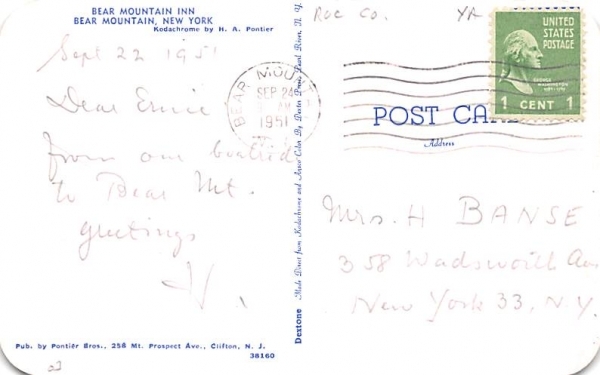 BEAR MOUNTAIN INN
BEAR MOUNTAIN, NEW YORK
Kodachrome by H. A. Pontier
Sept 22 1951
Dear Ernie
from our boatride
to Bear Mt.
greetings
H.
Pub. by Pontier Bros., 258 Mt. Prospect Ave., Clifton, N. J.
38160
23
Dextone Made Direct from Kodachrome and Ansco Color By Dexter Press, Pearl River, N. Y.
ROC CO.
BEAR MOUNT
SEP 24
AM
1951
N.Y.
UNITED
STATES
POSTAGE
GEORGE
WASHINGTON
1 CENT 1
POST CARD
Address
Mrs. H BANSE
358 Wadsworth Ave
New York 33, N.Y.